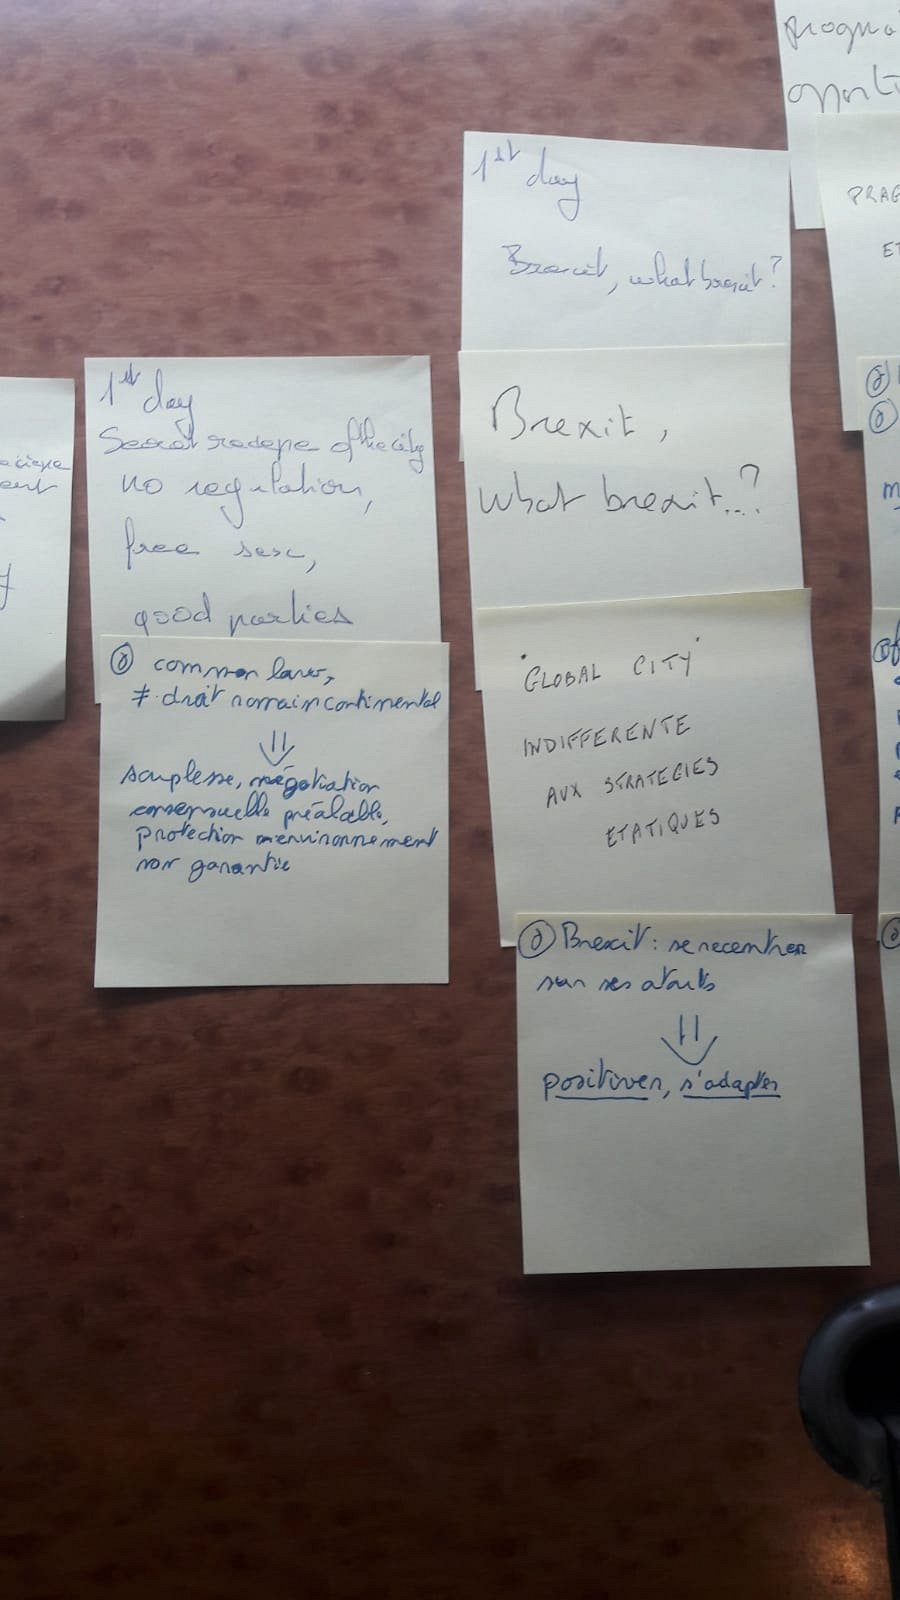 1st day
Secret recepe of the city
no regulation,
free sex,
good parties
common law,
≠ droit romain continental
⇓
souplesse, négociation
consensuelle préalable,
protection environnement
non garantie
1st day
Brexit, what brexit?
Brexit,
what brexit..?
"GLOBAL CITY"
INDIFFERENTE
AUX STRATEGIES
ETATIQUES
Brexit : se recentrer
sur ses atouts
⇓
positiver, s'adapter